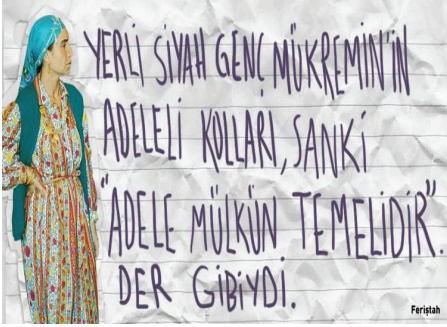 YERLİ SİYAH GENÇ MÜKREMİN'İN
ADELELİ KOLLARI, SANKİ
"ADELE MÜLKÜN TEMELİDİR".
DER GİBİYDİ.
Feriştah